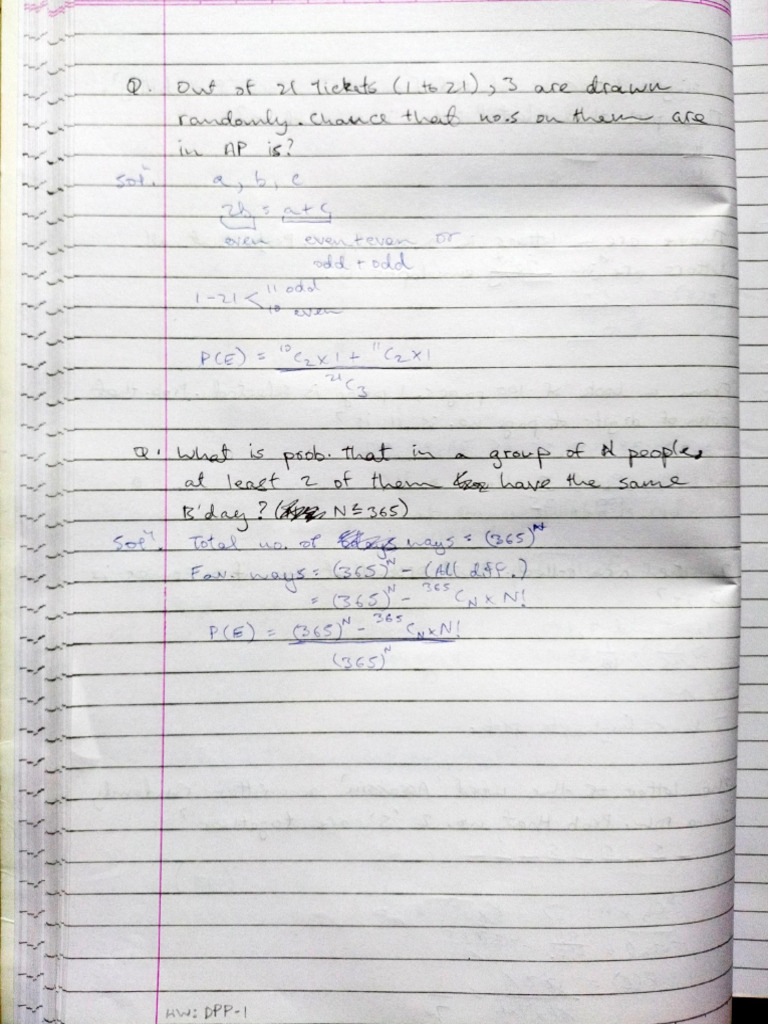 Q. Out of 21 Tickets (1 to 21), 3 are drawn
randomly. Chance that no.s on them are
in AP is?
Solⁿ. a, b, c
2b = a+c
even even+even or
odd + odd
1-21 < 11 odd
10 even
P(E) = ¹⁰C₂×1 + ¹¹C₂×1
²¹C₃
Q. What is prob. that in a group of N people,
at least 2 of them have the same
B'day? (N≤365)
Solⁿ. Total no. of ways = (365)ᴺ
Fav. ways = (365)ᴺ - (All diff.)
= (365)ᴺ - ³⁶⁵Cɴ × N!
P(E) = (365)ᴺ - ³⁶⁵Cɴ×N!
(365)ᴺ
HW: DPP-1